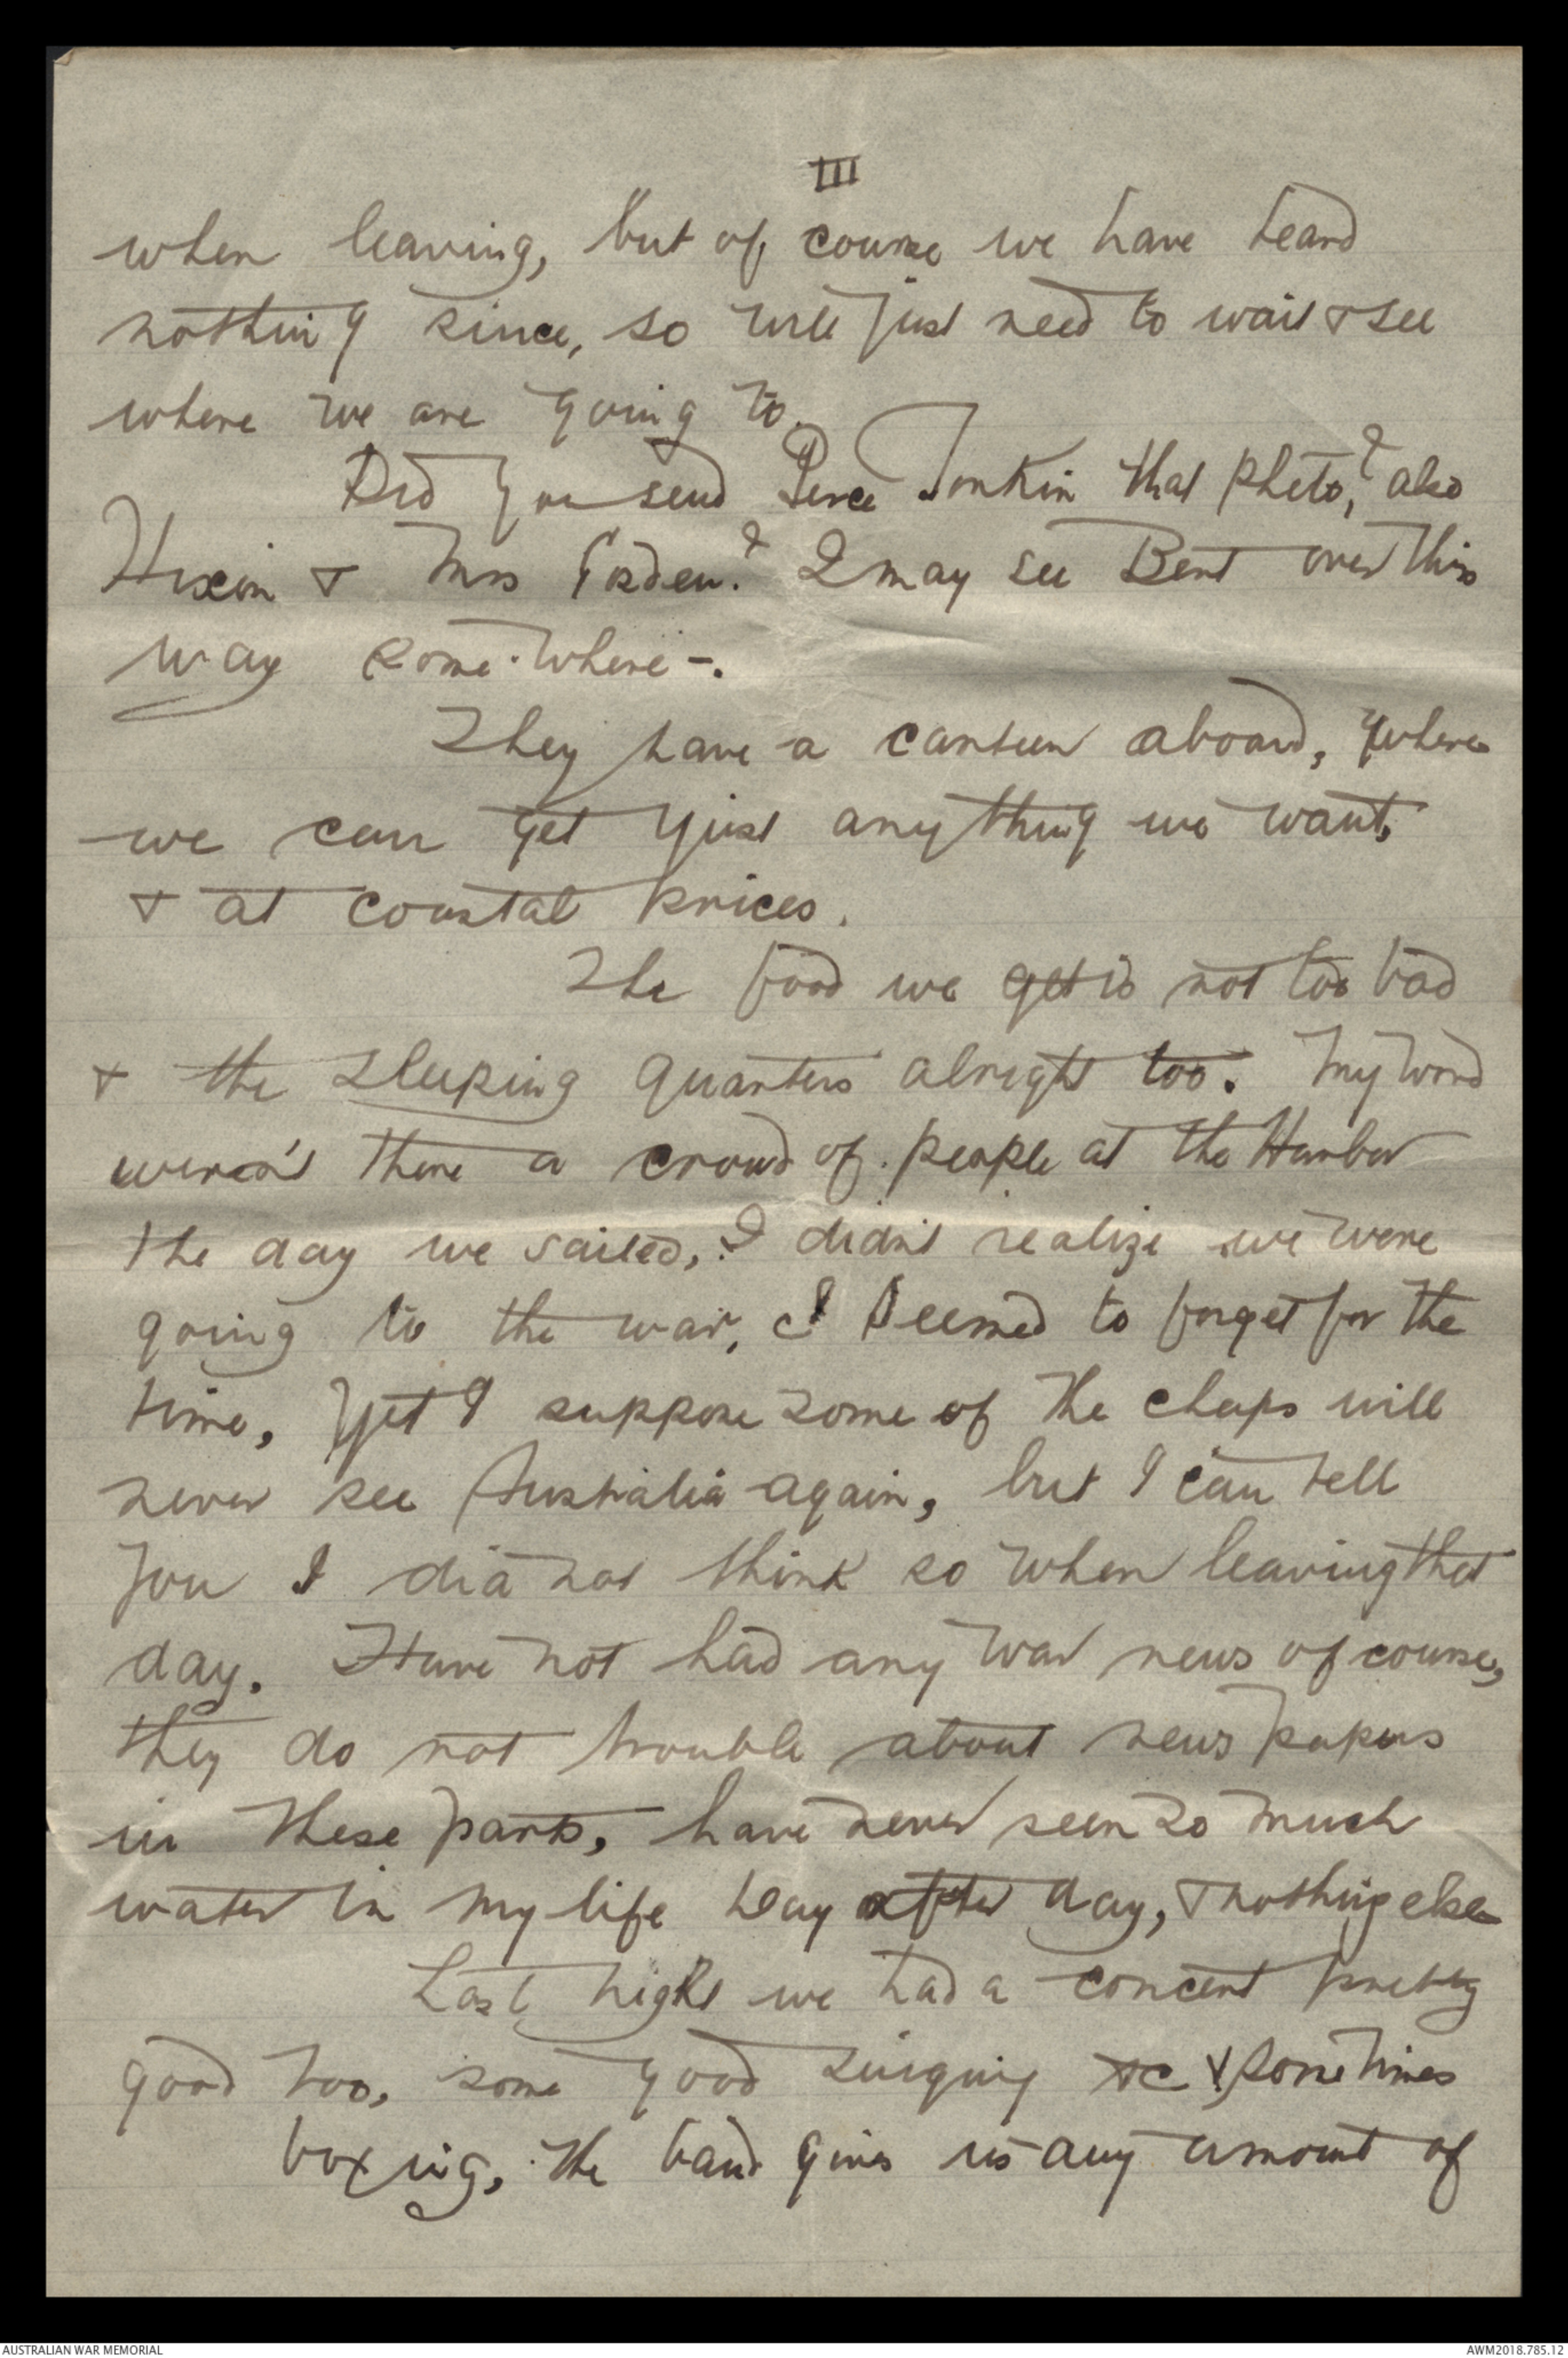 III
when leaving, but of course we have heard
nothing since, so will just need to wait & see
where we are going to.
Did you send Perce Jonkin that photo,? also
Hixon & Mrs ? I may see Bent over this
way some-where-.
They have a canteen aboard, where
we can get just anything we want,
& at coastal prices.
The food we get is not too bad
& the sleeping quarters alright too. My word
weren't there a crowd of people at the Harbor
the day we sailed,. I didn't realize we were
going to the war, I seemed to forget for the
time, yet I suppose some of the chaps will
never see Australia again, but I can tell
you I did not think so when leaving that
day. Have not had any war news of course,
they do not trouble about news papers
in these parts, have never seen so much
water in my life day after day, & nothing else
Last night we had a concert pretty
good too, some good singing &c & sometimes
boxing, the band gives us any amount of
AUSTRALIAN WAR MEMORIAL
AWM2018.785.12